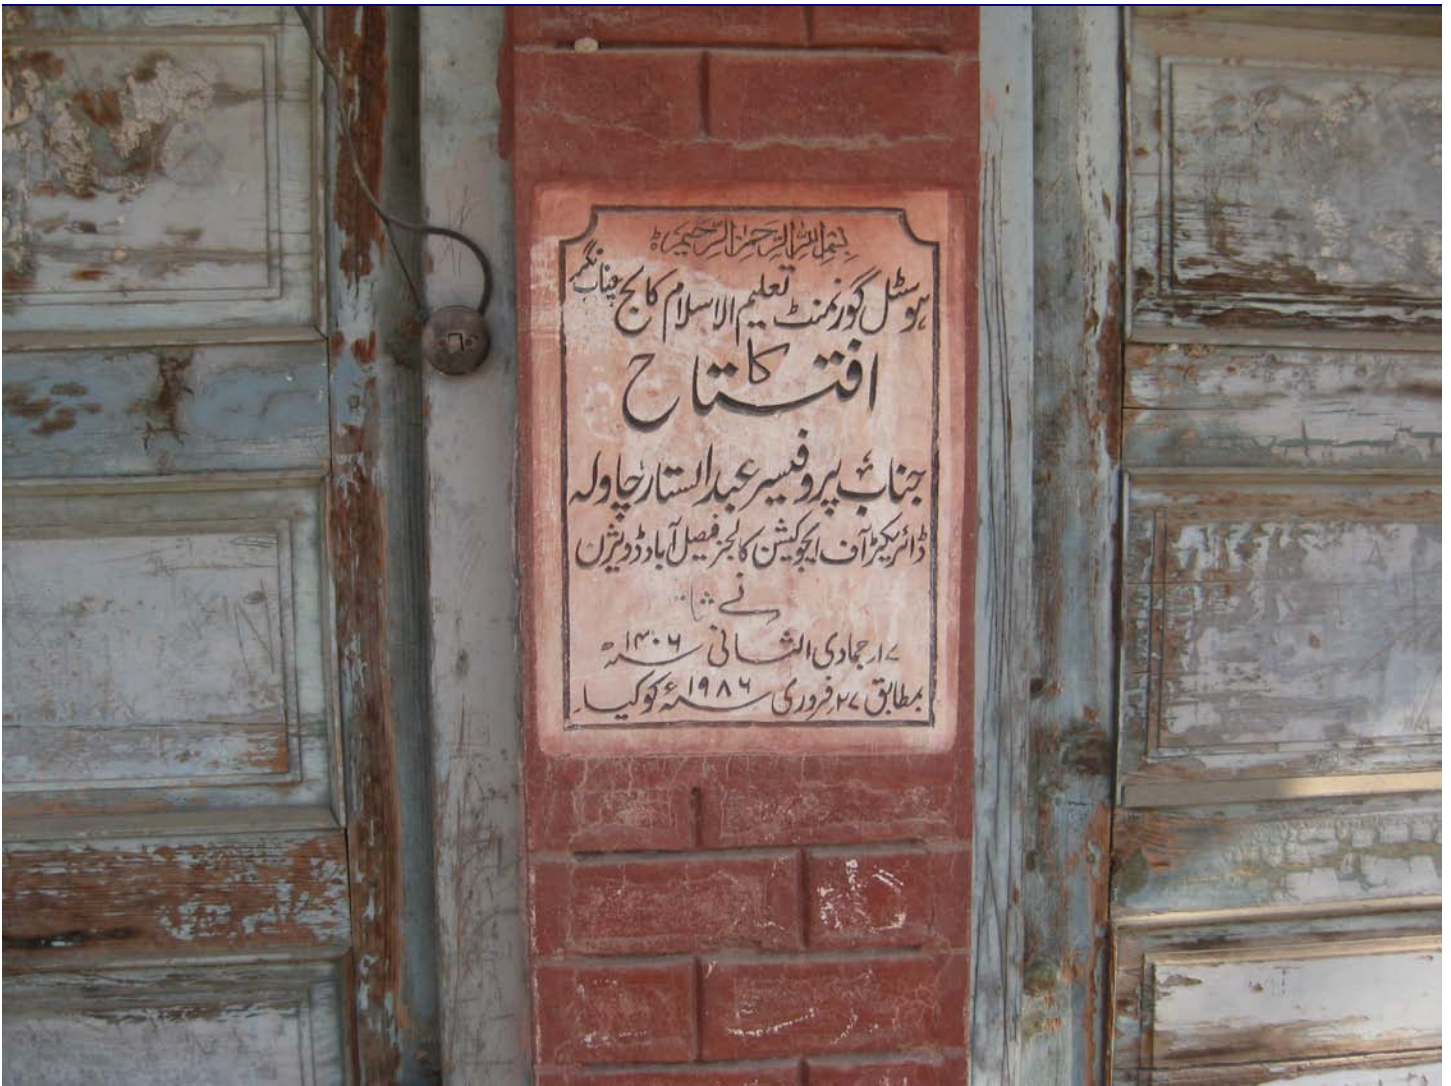 بسم اللہ الرحمن الرحیم
ہوسٹل گورنمنٹ تعلیم الاسلام کالج چناب نگر
کا
افتتاح
جناب پروفیسر عبدالستار چاولہ
ڈائریکٹر آف ایجوکیشن کالجز فیصل آباد ڈویژن
نے
۱۷ر جمادی الثانی ۱۴۰۶ سنہ ھ
بمطابق ۲۷ فروری ۱۹۸۶ سنہ ء کو کیا۔